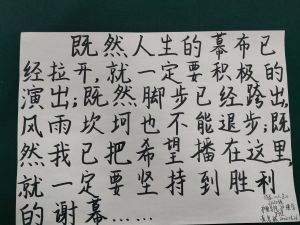 既然人生的幕布已
经拉开,就一定要积极的
演出;既然脚步已经跨出,
风雨坎坷也不能退步;既
然我已把希望播在这里,
就一定要坚持到胜利
的谢幕......